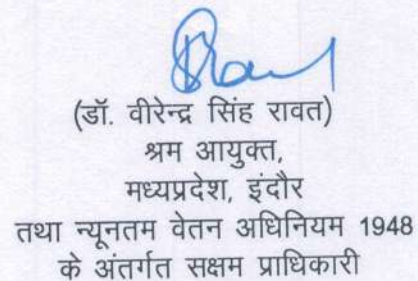 (डॉ. वीरेन्द्र सिंह रावत)
श्रम आयुक्त,
मध्यप्रदेश, इंदौर
तथा न्यूनतम वेतन अधिनियम 1948
के अंतर्गत सक्षम प्राधिकारी